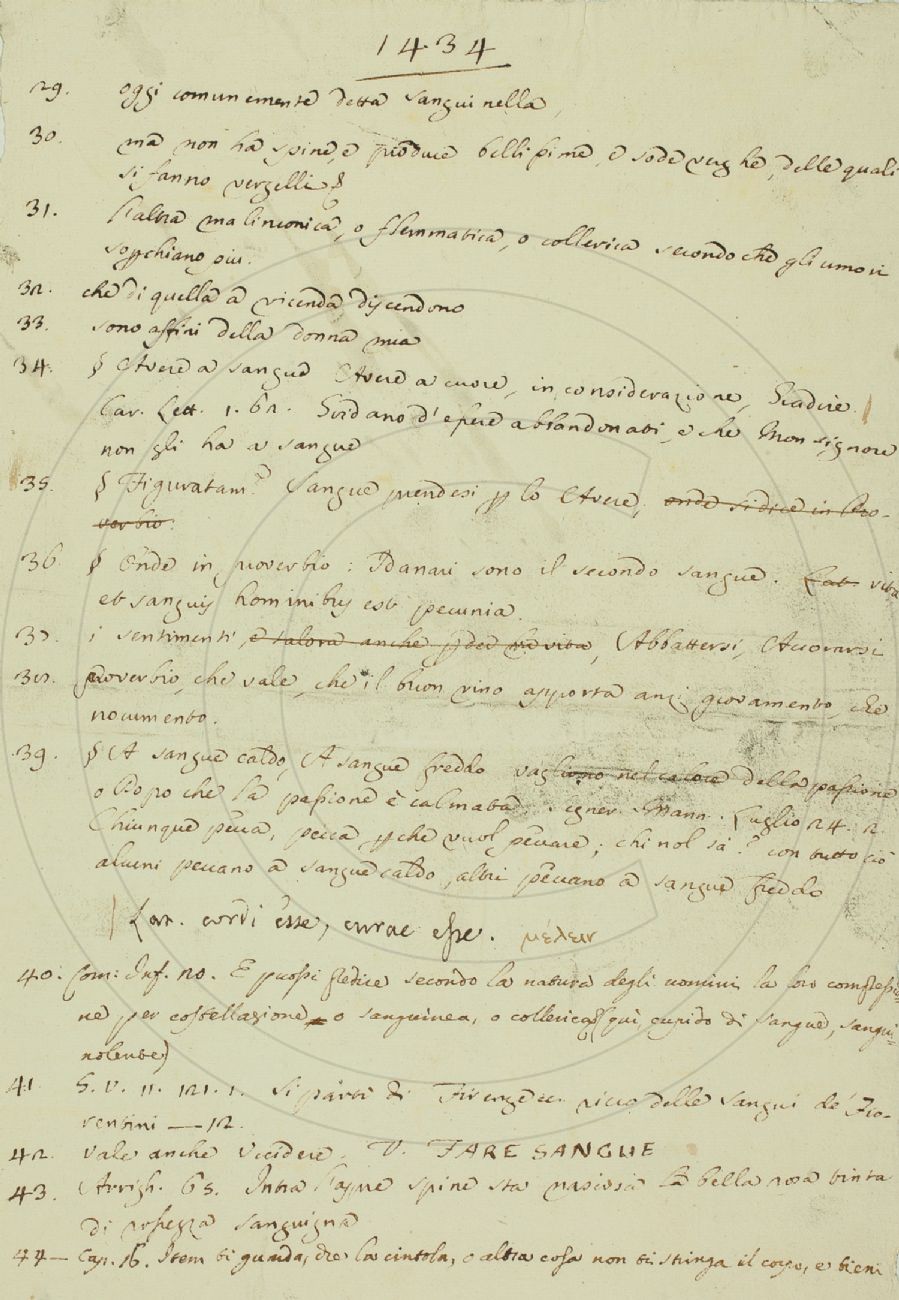 1434
29. oggi comunemente detta sanguinella,
30. ma non ha spine, e produce belli pimê, e sode verghe, delle quali
si fanno vergelli §
31. l'altra malinconica, o flemmatica, o collerica secondo che gli umori
soprchiano piu.
32. che di quella a vicenda discendono
33. sono affini della donna mia
34. § Avere a sangue Avere a cuore, in considerazione, Gradire.
Car. Lett. 1. 62. Gridano d'essere abbandonati, e che Monsignore
non gli ha a sangue
35. § Figuratam.e Sangue prendesi p lo Avere, onde si dice in Pro-
verbio.
36. § Onde in proverbio: I danari sono il secondo sangue. Lat. vita
et sanguis hominibus est pecunia.
37. i sentimenti, e talora anche p la vita, Abbattersi, Accorarsi
38. proverbio, che vale, che il buon vino apporta anzi giovamento, che
nocumento.
39. § A sangue caldo, A sangue freddo vagliono nel calore della passione
o Dopo che la passione è calmata. Segner. Mann. Luglio 24. 2.
Chiunque pecca, pecca pche vuol peccare; chi nol sà? con tutto ciò
alcuni peccano a sangue caldo, altri peccano a sangue freddo
| Lat. cordi esse, curae esse. μέλειν
40. Com: Inf. 20. E puossi predice secondo la natura degli uomini la loro complessio=
ne per costellazione o sanguinea, o collerica (qui, cupido di sangue, sangui=
nolente)
41. G. V. 11. 121. 1. Si partì di Firenze ec. ricco delle sangui de' Fio-
rentini — 12.
42. vale anche Uccidere. V. FARE SANGUE
43. Arrigh. 65. Intra l'aspre spine sta nascosa la bella rosa tinta
di rossezza sanguigna
44 — Cap. 16. Item ti guarda, che la cintola, o altra cosa non ti stringa il corpo, e tieni